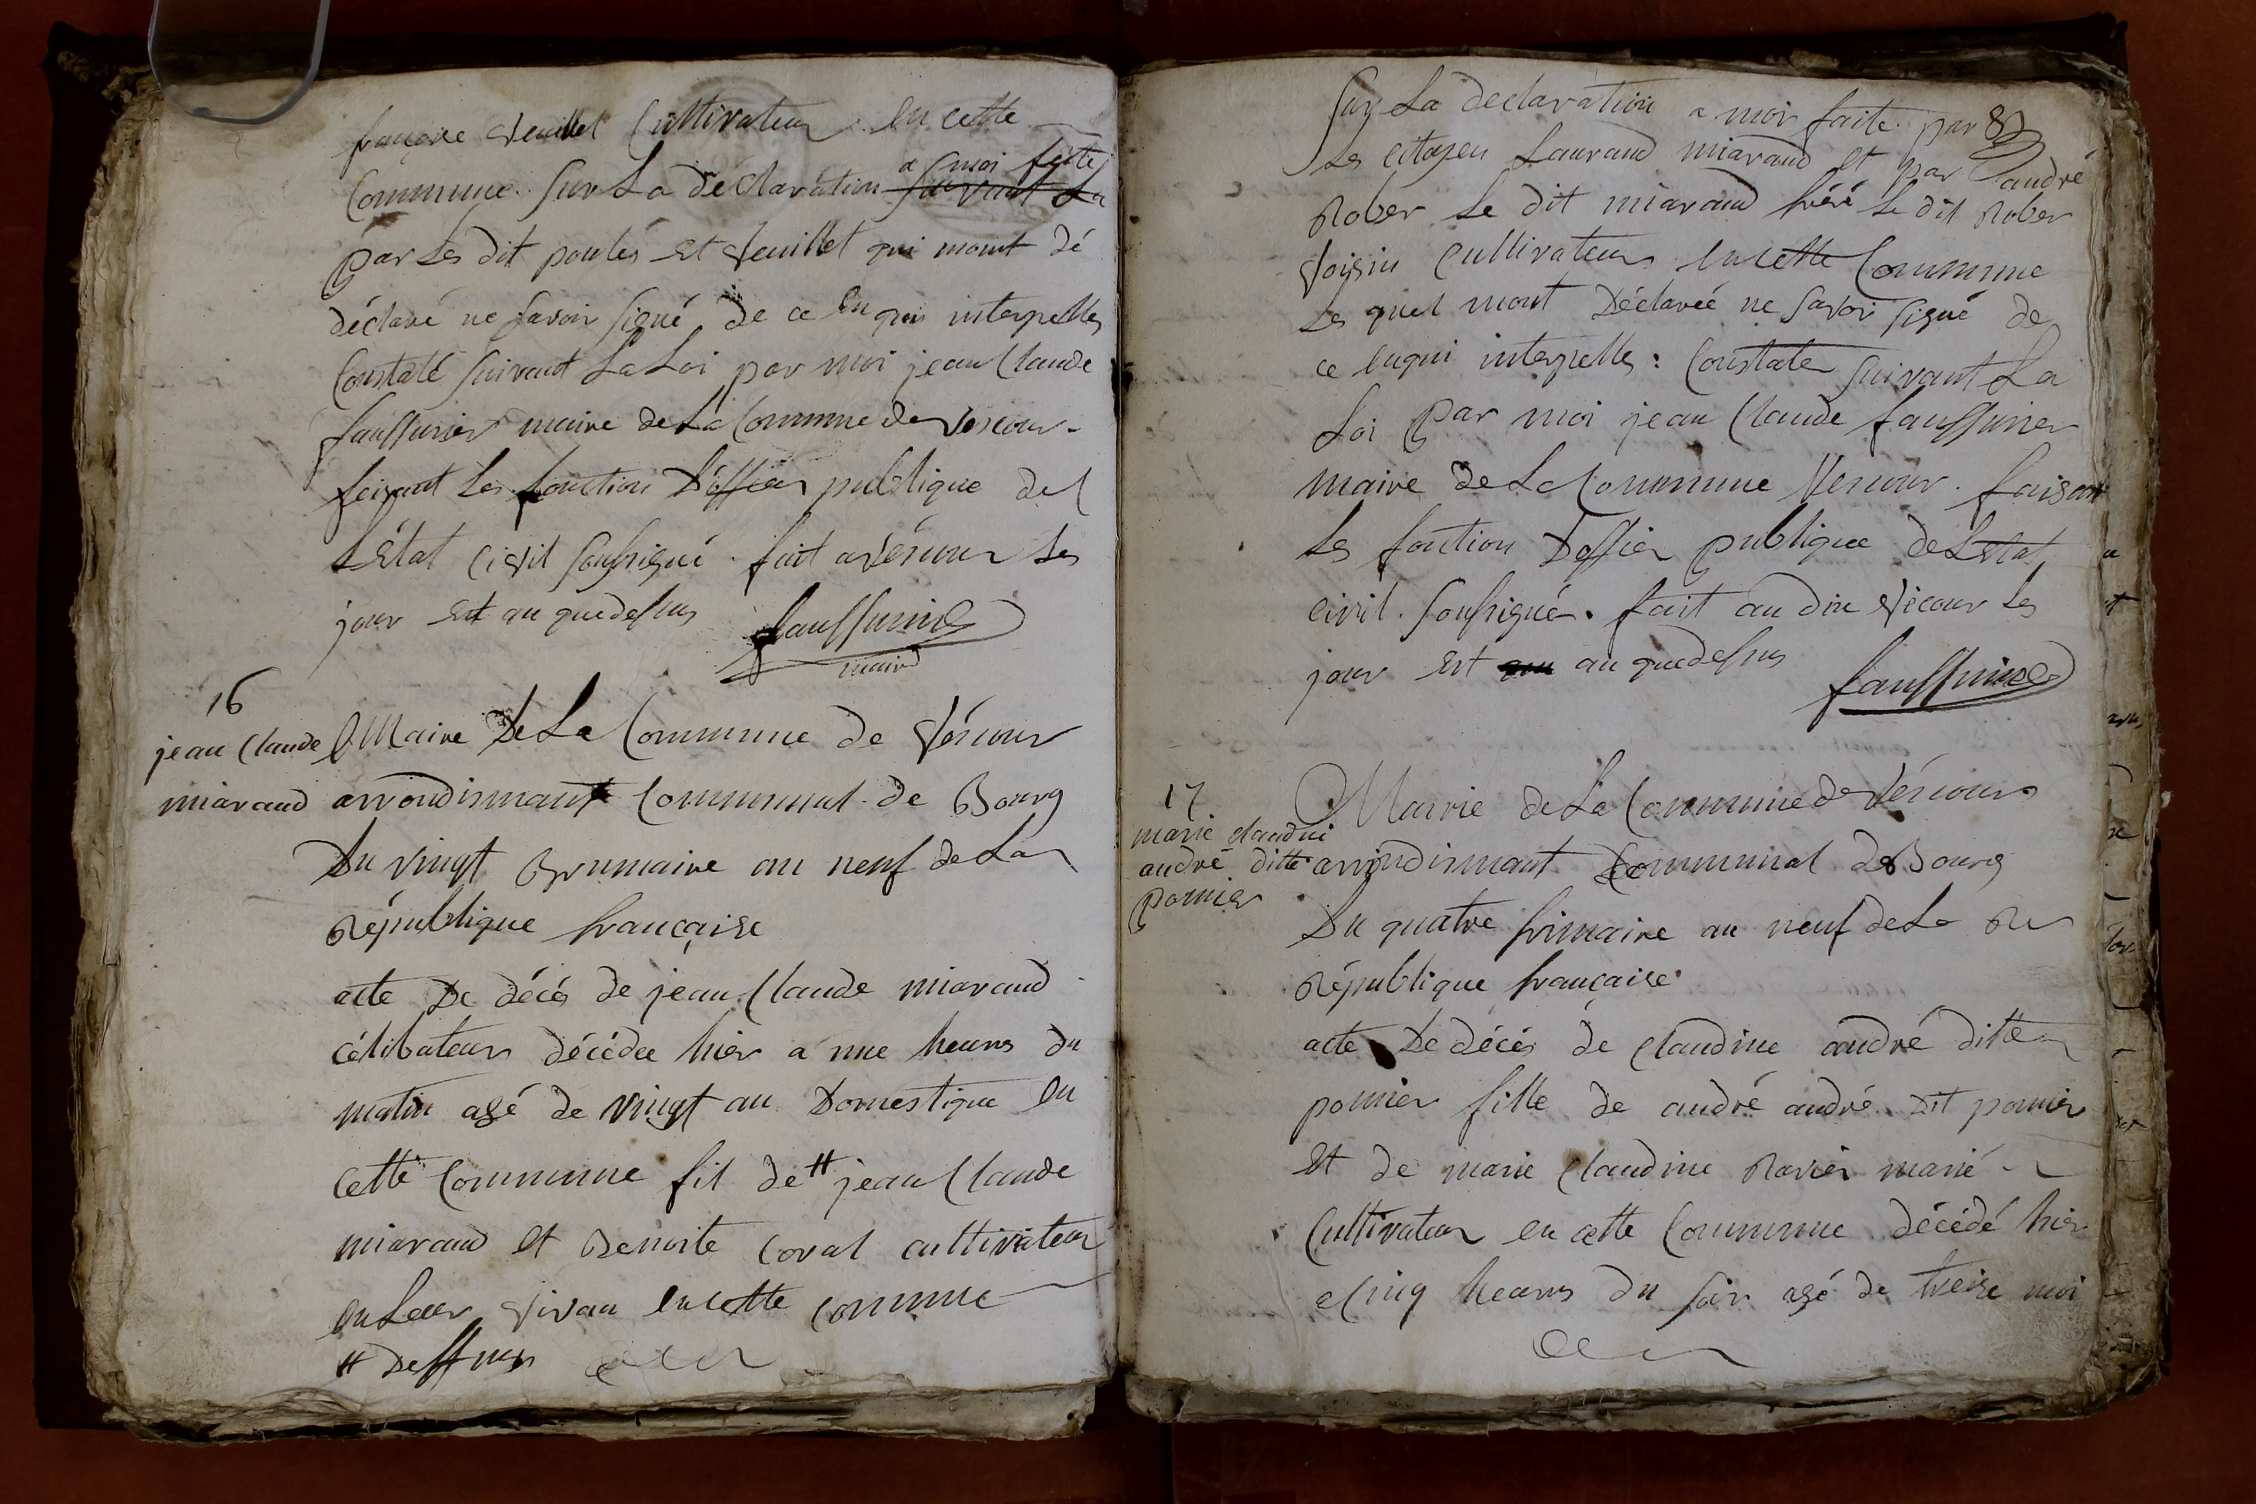 françoise Veuillet Cultivateur en cette
Commune. Sur La declaration a moi faite suivant La
par Les dit poulés Et Veuillet qui mont dé
déclaré ne savoir signé de ce enquis interpellés
Constaté suivant La Loi par moi jean Claude
faussurier maire de La Commune de Verjour
feisant Les fonction D'officier publique de l
L'État Civil soussigné. fait a Vérjour Les
jour Et an que dessus faussurier
maire
16
jean Claude
miaraud
Maire De La Commune de Vérjour
arrondismant Communal de Bourg
Du vingt Brumaire an neuf de La
République française
acte De décés de jean Claude miaraud
célibateur décédée hier a une heures du
matin agé de vingt an Domestique en
cette Commune fil de # jean Claude
miaraud Et Benoite Coval cultivateur
en Leur vivan en cette commune
# Deffuns
83
Sur La declaration a moi faite par
Les citoyen Laurand miaraud et par andré
Rober Le dit miaraud frére Le dit Rober
voisin Cultivateur en cette Commune
Les quel mont Déclareé ne savoir signé de
ce enqui interpellés : Constaté suivant La
Loi par moi jean Claude faussurier
maire de La Commune Verjour. faisant
Les fontion D'officier publique de L'Etat
civil. soussigné. fait au dit Vejour Les
jour Et an que dessus faussurier
17
marie claudine
andré ditte
pomier
Mairie de La Commune de Vérjour
arrondismant Communal de Bourg
Du quatre frimaire an neuf de La Re
République française
acte De décés de Claudine andré ditte
pomier fille de andré andré Dit pomier
Et de marie Claudine Ravier marié
Cultivateur en cette Commune décédé hier
a cinq heures du soir agé de treise moi